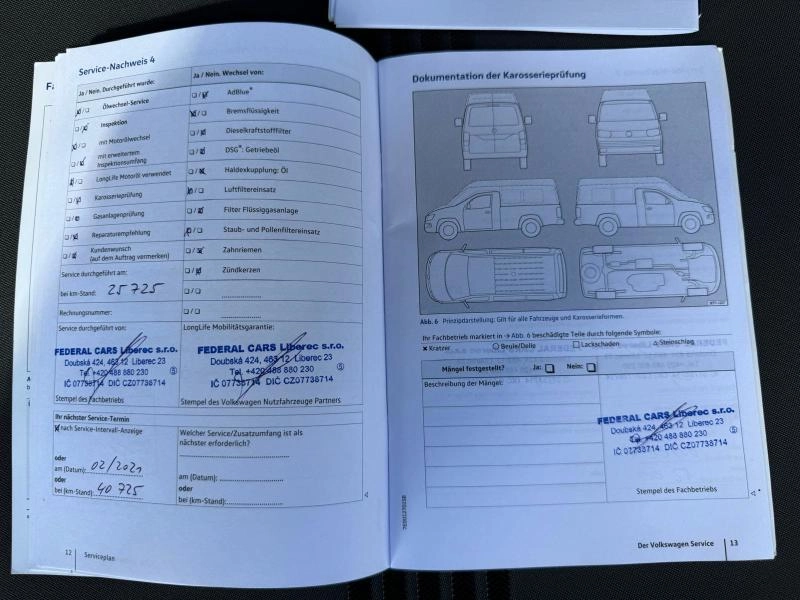 Service-Nachweis 4
Ja / Nein. Durchgeführt wurde:
Ölwechsel-Service
Inspektion
mit Motorölwechsel
mit erweitertem
Inspektionsumfang
LongLife Motoröl verwendet
Karosserieprüfung
Gasanlagenprüfung
Reparaturempfehlung
Kundenwunsch
(auf dem Auftrag vermerken)
Service durchgeführt am:
bei km-Stand: 25 725
Rechnungsnummer:
Service durchgeführt von:
FEDERAL CARS Liberec s.r.o.
Doubská 424, 463 12 Liberec 23
Tel. +420 488 880 230
IČ 07738714 DIČ CZ07738714
Stempel des Fachbetriebs
Ja / Nein. Wechsel von:
AdBlue®
Bremsflüssigkeit
Dieselkraftstofffilter
DSG®: Getriebeöl
Haldexkupplung: Öl
Luftfiltereinsatz
Filter Flüssiggasanlage
Staub- und Pollenfiltereinsatz
Zahnriemen
Zündkerzen
LongLife Mobilitätsgarantie:
FEDERAL CARS Liberec s.r.o.
Doubská 424, 463 12 Liberec 23
Tel. +420 488 880 230 ⑤
IČ 07738714 DIČ CZ07738714
Stempel des Volkswagen Nutzfahrzeuge Partners
Ihr nächster Service-Termin
nach Service-Intervall-Anzeige
oder
am (Datum): 02/2021
oder
bei (km-Stand): 40 725
Welcher Service/Zusatzumfang ist als
nächster erforderlich?
am (Datum):
oder
bei (km-Stand):
12 Serviceplan
Dokumentation der Karosserieprüfung
Abb. 6 Prinzipdarstellung: Gilt für alle Fahrzeuge und Karosserieformen.
Ihr Fachbetrieb markiert in → Abb. 6 beschädigte Teile durch folgende Symbole:
× Kratzer ○ Beule/Delle □ Lackschaden △ Steinschlag
Mängel festgestellt? Ja: Nein:
Beschreibung der Mängel:
FEDERAL CARS Liberec s.r.o.
Doubská 424, 463 12 Liberec 23
Tel. +420 488 880 230 ⑤
IČ 07738714 DIČ CZ07738714
Stempel des Fachbetriebs
Der Volkswagen Service 13